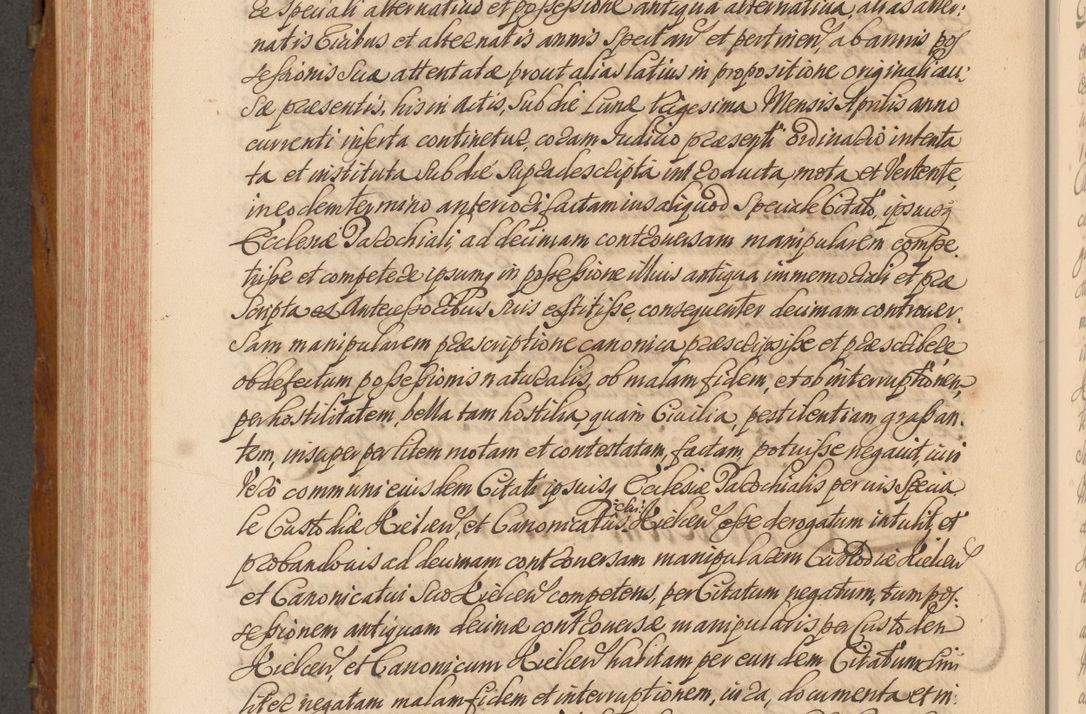 ce speciali alternatius et possessione antiqua alternativa, alias alter:
natis vicibus et alternatis annis spectan et pertinen, ab annis pos
sessionis suæ attentatæ prout alias latius in propositione originali cau:
sæ præsentis, his in actis, sub die Lunæ Vigesima Mensis Aprilis anno
currenti inserta continetur, coram Judicio præsenti ordinario intenta
ta et instituta sub die supradescripta introducta, mota et vertente,
in eodem termino anteriori factam ius aliquod speciale Citato, ipsiusq
Ecclesiæ Parochiali, ad decimam controversam manipularem compe
tiisse et competere ipsumq in possessione illius antiqua immemoriali et præ
scripta ex Antecessoribus suis extitisse, consequenter decimam controver.
sam manipularem præscriptione canonica præscripsisse et præscribere
ob defectum possessionis naturalis, ob malam fidem, et ob interruptionem,
per hostilitatem, bella tam hostilia, quam Civilia, pestilentiam grassan.
tem, insuper per litem motam et contestatam, factam, potuisse negavit iuri
vero communi eiusdem Citati ipsiusq Ecclesiæ Parochialis per ius specia
le Custodiæ Kielcen, et Canonicatus Kielcen esse derogatum intulit, et
probando ius ad decimam controversam manipularem Custodiæ Kielcen
et Canonicatui suo Kielcen competens, per Citatum negatum, tum pos:
sessionem antiquam decimæ controversæ manipularis per Custodem
Kielcen, et Canonicum Kielcen habitam per eundem Citatum simi
liter negatam malam fidem et interruptionem, iura, documenta et in: